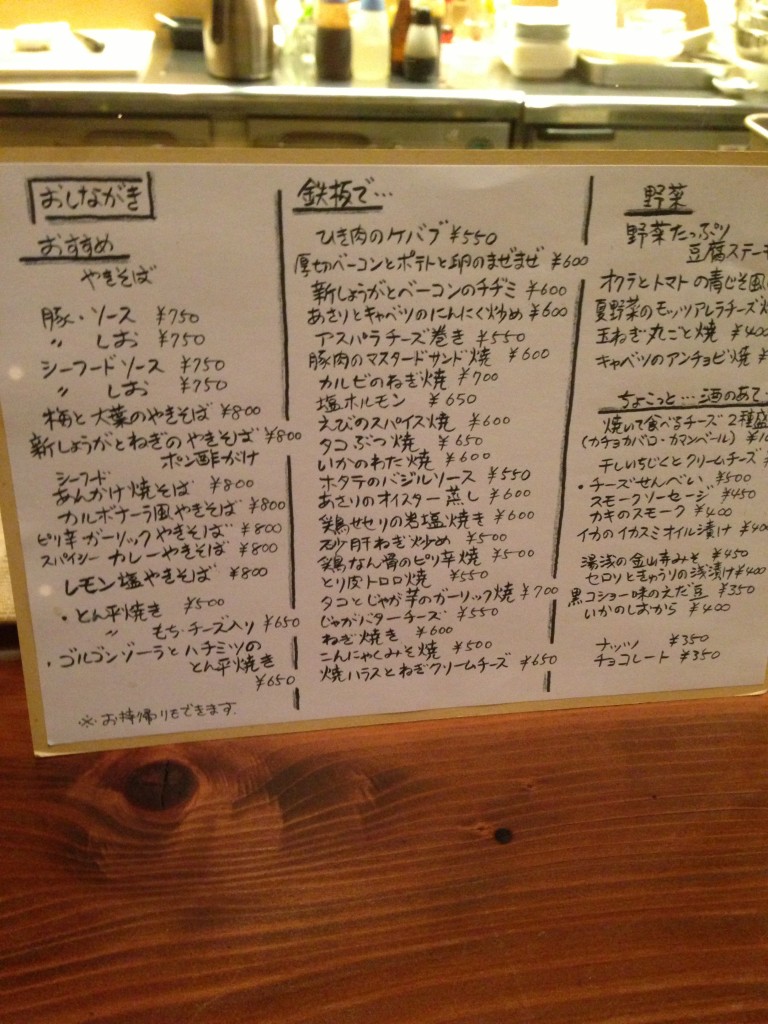 おしながき
おすすめ
やきそば
豚・ソース ¥750
〃 しお ¥750
シーフードソース ¥750
〃 しお ¥750
梅と大葉のやきそば ¥800
新しょうがとねぎのやきそば ¥800
ポン酢がけ
シーフード
あんかけ焼そば ¥800
カルボナーラ風やきそば ¥800
ピリ辛ガーリックやきそば ¥800
スパイシーカレーやきそば ¥800
レモン塩やきそば ¥800
・とん平焼き ¥500
〃 もち・チーズ入り ¥650
・ゴルゴンゾーラとハチミツの
とん平焼き
¥650
※お持帰りもできます.
鉄板で…
ひき肉のケバブ ¥550
厚切ベーコンとポテトと卵のまぜまぜ ¥600
新しょうがとベーコンのチヂミ ¥600
あさりとキャベツのにんにく炒め ¥600
アスパラチーズ巻き ¥550
豚肉のマスタードサンド焼 ¥600
カルビのねぎ焼 ¥700
塩ホルモン ¥650
えびのスパイス焼 ¥600
タコぶつ焼 ¥650
いかのわた焼 ¥600
ホタテのバジルソース ¥550
あさりのオイスター蒸し ¥600
鶏せせりの岩塩焼き ¥600
砂肝ねぎ炒め ¥500
鶏なん骨のピリ辛焼 ¥500
とり肉トロロ焼 ¥550
タコとじゃが芋のガーリック焼 ¥700
じゃがバターチーズ ¥550
ねぎ焼き ¥600
こんにゃくみそ焼 ¥500
焼ハラスとねぎクリームチーズ ¥650
野菜
野菜たっぷり
豆腐ステー
オクラとトマトの青じそ風
夏野菜のモッツァレラチーズ
玉ねぎ丸ごと焼 ¥40
キャベツのアンチョビ焼 ¥
ちょこっと…酒のあて
焼いて食べるチーズ 2種盛
(カチョカバロ・カマンベール) ¥
干しいちじくとクリームチーズ
・チーズせんべい ¥500
スモークソーセージ ¥450
カキのスモーク ¥400
イカのイカスミオイル漬け ¥400
湯浅の金山寺みそ ¥450
セロリときゅうりの浅漬け ¥400
黒コショー味のえだ豆 ¥350
いかのしおから ¥400
ナッツ ¥350
チョコレート ¥350